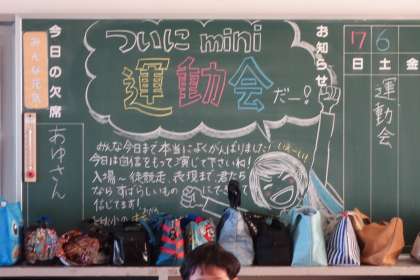 ついに mini
運動会
だー!
みんな元気
今日の欠席
あゆさん
お知らせ
7 6
日 土 金
運動会
みんな今日まで本当によくがんばりました!
今日は自信をもって演じて下さいね!
入場〜徒競走、表現まで君たち
ならすばらしいもの にできるって
信じてます!